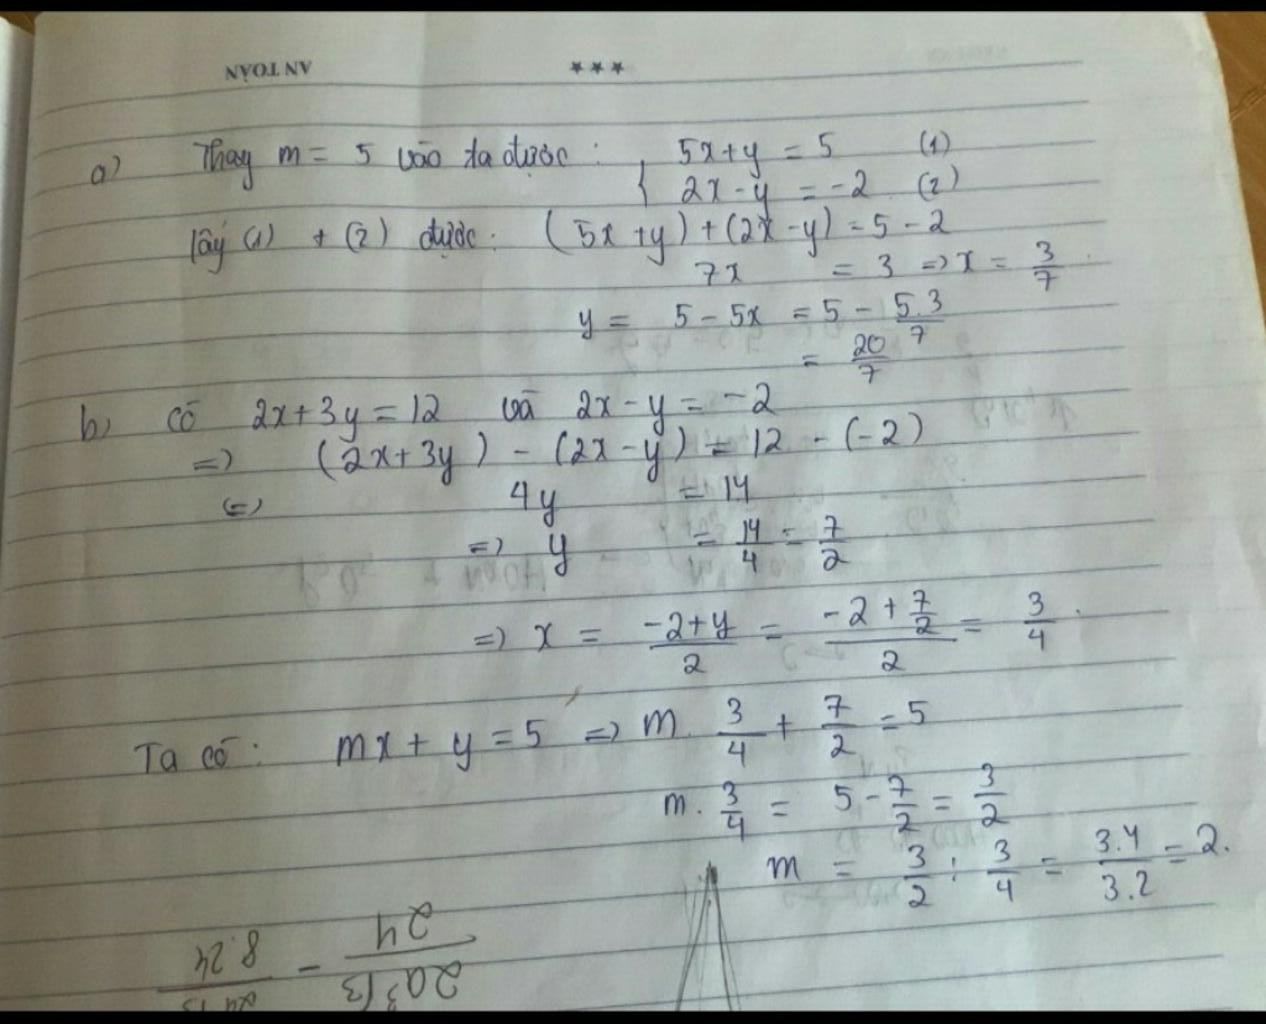 AN TOÀN ***
a) Thay m = 5 vào ta được: { 5x+y = 5 (1)
2x-y = -2 (2)
lấy (1) + (2) được: (5x+y)+(2x-y)=5-2
7x = 3 => x = 3/7
y = 5-5x = 5 - 5.3/7
= 20/7
b) có 2x+3y=12 và 2x-y=-2
=> (2x+3y) - (2x-y) = 12 - (-2)
<=> 4y = 14
=> y = 14/4 = 7/2
=> x = (-2+y)/2 = (-2+7/2)/2 = 3/4.
Ta có: mx+y=5 => m. 3/4 + 7/2 = 5
m. 3/4 = 5-7/2 = 3/2
m = 3/2 : 3/4 = 3.4/3.2 = 2.
2a³√3/24 - 8.24